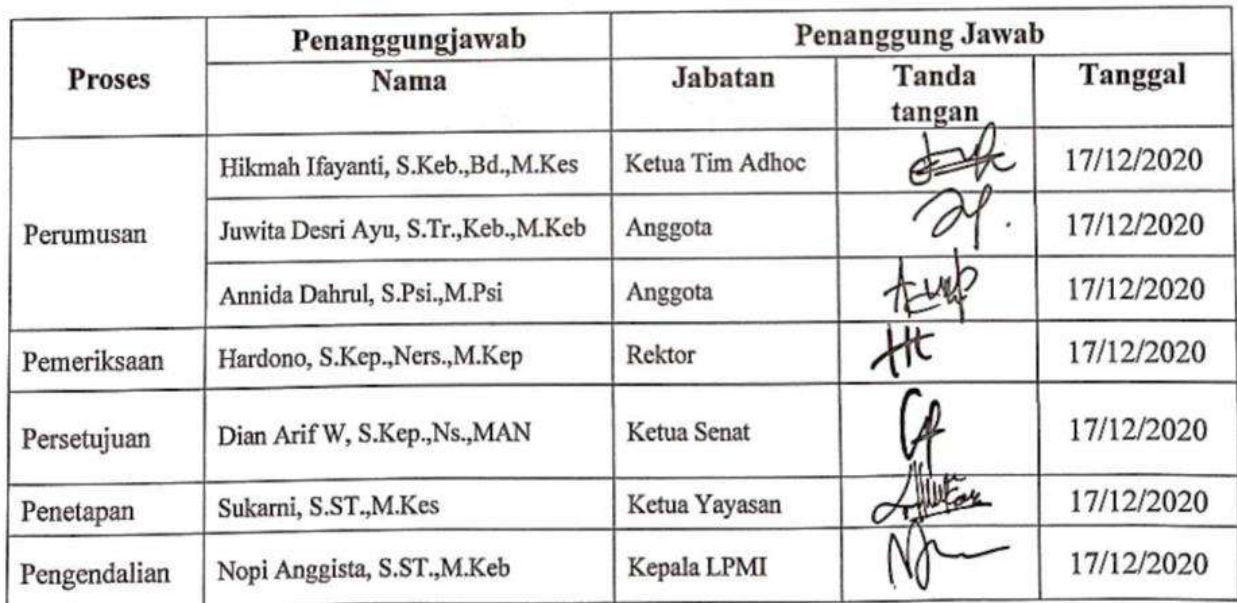 Proses Penanggungjawab Penanggung Jawab
Nama Jabatan Tanda tangan Tanggal
Perumusan Hikmah Ifayanti, S.Keb.,Bd.,M.Kes Ketua Tim Adhoc 17/12/2020
Juwita Desri Ayu, S.Tr.,Keb.,M.Keb Anggota 17/12/2020
Annida Dahrul, S.Psi.,M.Psi Anggota 17/12/2020
Pemeriksaan Hardono, S.Kep.,Ners.,M.Kep Rektor 17/12/2020
Persetujuan Dian Arif W, S.Kep.,Ns.,MAN Ketua Senat 17/12/2020
Penetapan Sukarni, S.ST.,M.Kes Ketua Yayasan 17/12/2020
Pengendalian Nopi Anggista, S.ST.,M.Keb Kepala LPMI 17/12/2020